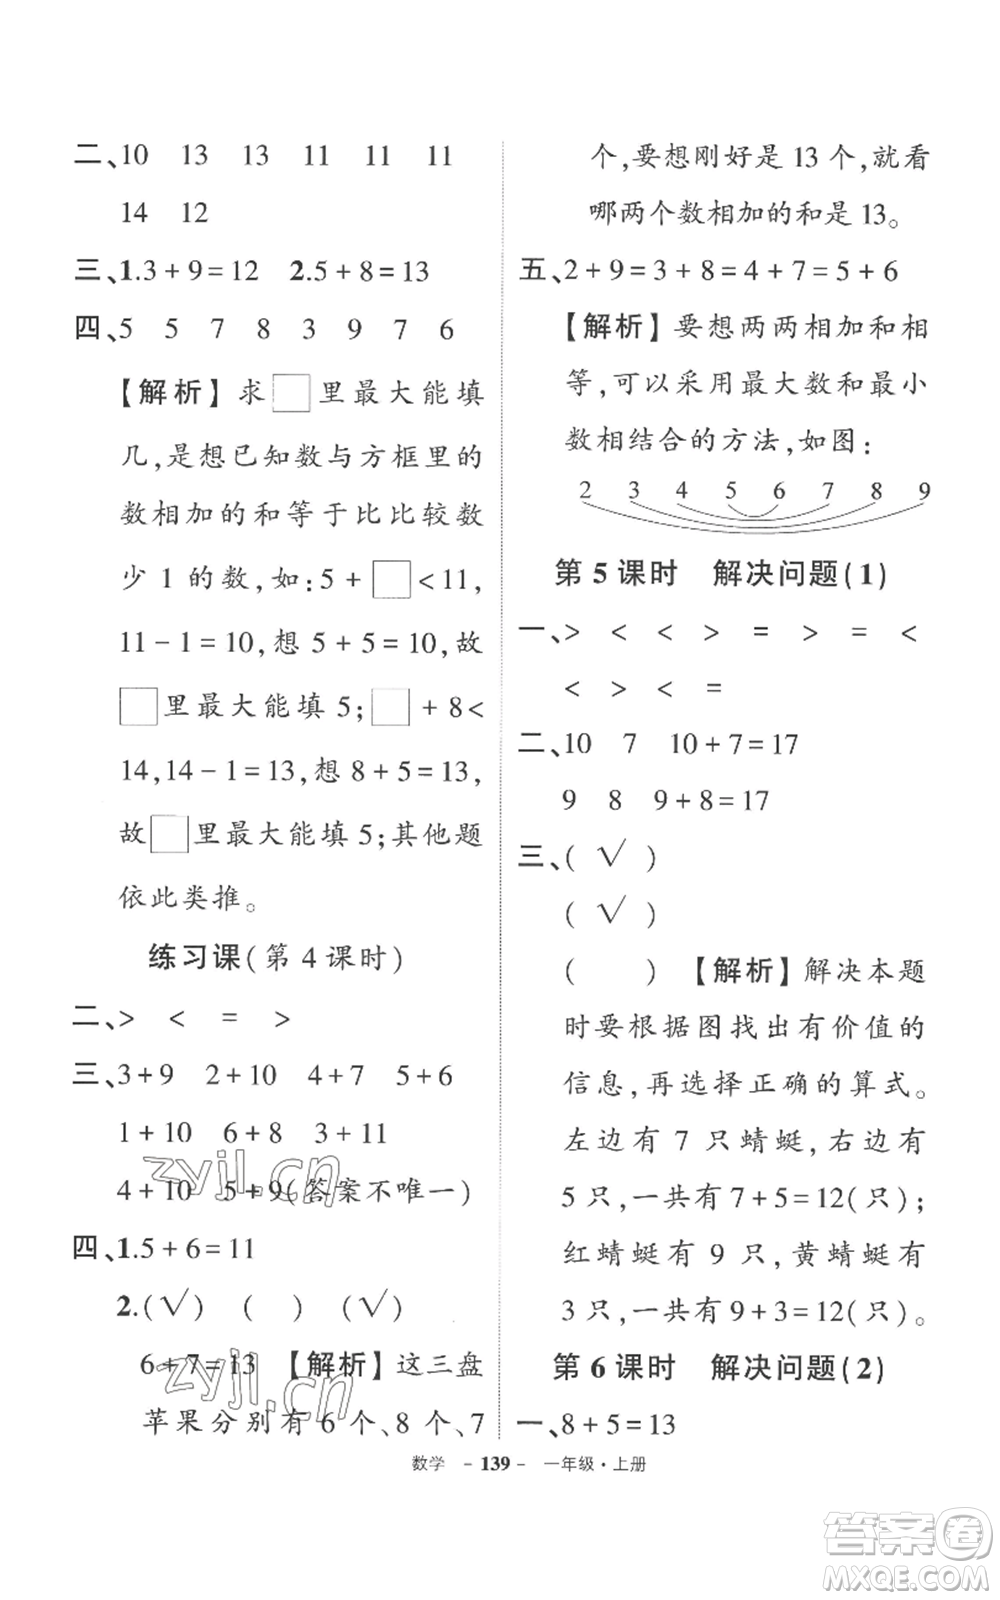 二、10 13 13 11 11 11
14 12
三、1.3+9=12 2.5+8=13
四、5 5 7 8 3 9 7 6
【解析】求□里最大能填
几,是想已知数与方框里的
数相加的和等于比比较数
少1的数,如:5+□<11,
11-1=10,想5+5=10,故
□里最大能填5;□+8<
14,14-1=13,想8+5=13,
故□里最大能填5;其他题
依此类推。
练习课(第4课时)
二、> < = >
三、3+9 2+10 4+7 5+6
1+10 6+8 3+11
4+10 5+9(答案不唯一)
四、1.5+6=11
2.(√) ( ) (√)
6+7=13 【解析】这三盘
苹果分别有6个、8个、7
个,要想刚好是13个,就看
哪两个数相加的和是13。
五、2+9=3+8=4+7=5+6
【解析】要想两两相加和相
等,可以采用最大数和最小
数相结合的方法,如图:
2 3 4 5 6 7 8 9
第5课时 解决问题(1)
一、> < < > = > = <
< > < =
二、10 7 10+7=17
9 8 9+8=17
三、(√)
(√)
( ) 【解析】解决本题
时要根据图找出有价值的
信息,再选择正确的算式。
左边有7只蜻蜓,右边有
5只,一共有7+5=12(只);
红蜻蜓有9只,黄蜻蜓有
3只,一共有9+3=12(只)。
第6课时 解决问题(2)
一、8+5=13
数学 -139- 一年级·上册
zyjl.cn
zyjl.cn
答案圈
MXQE.COM